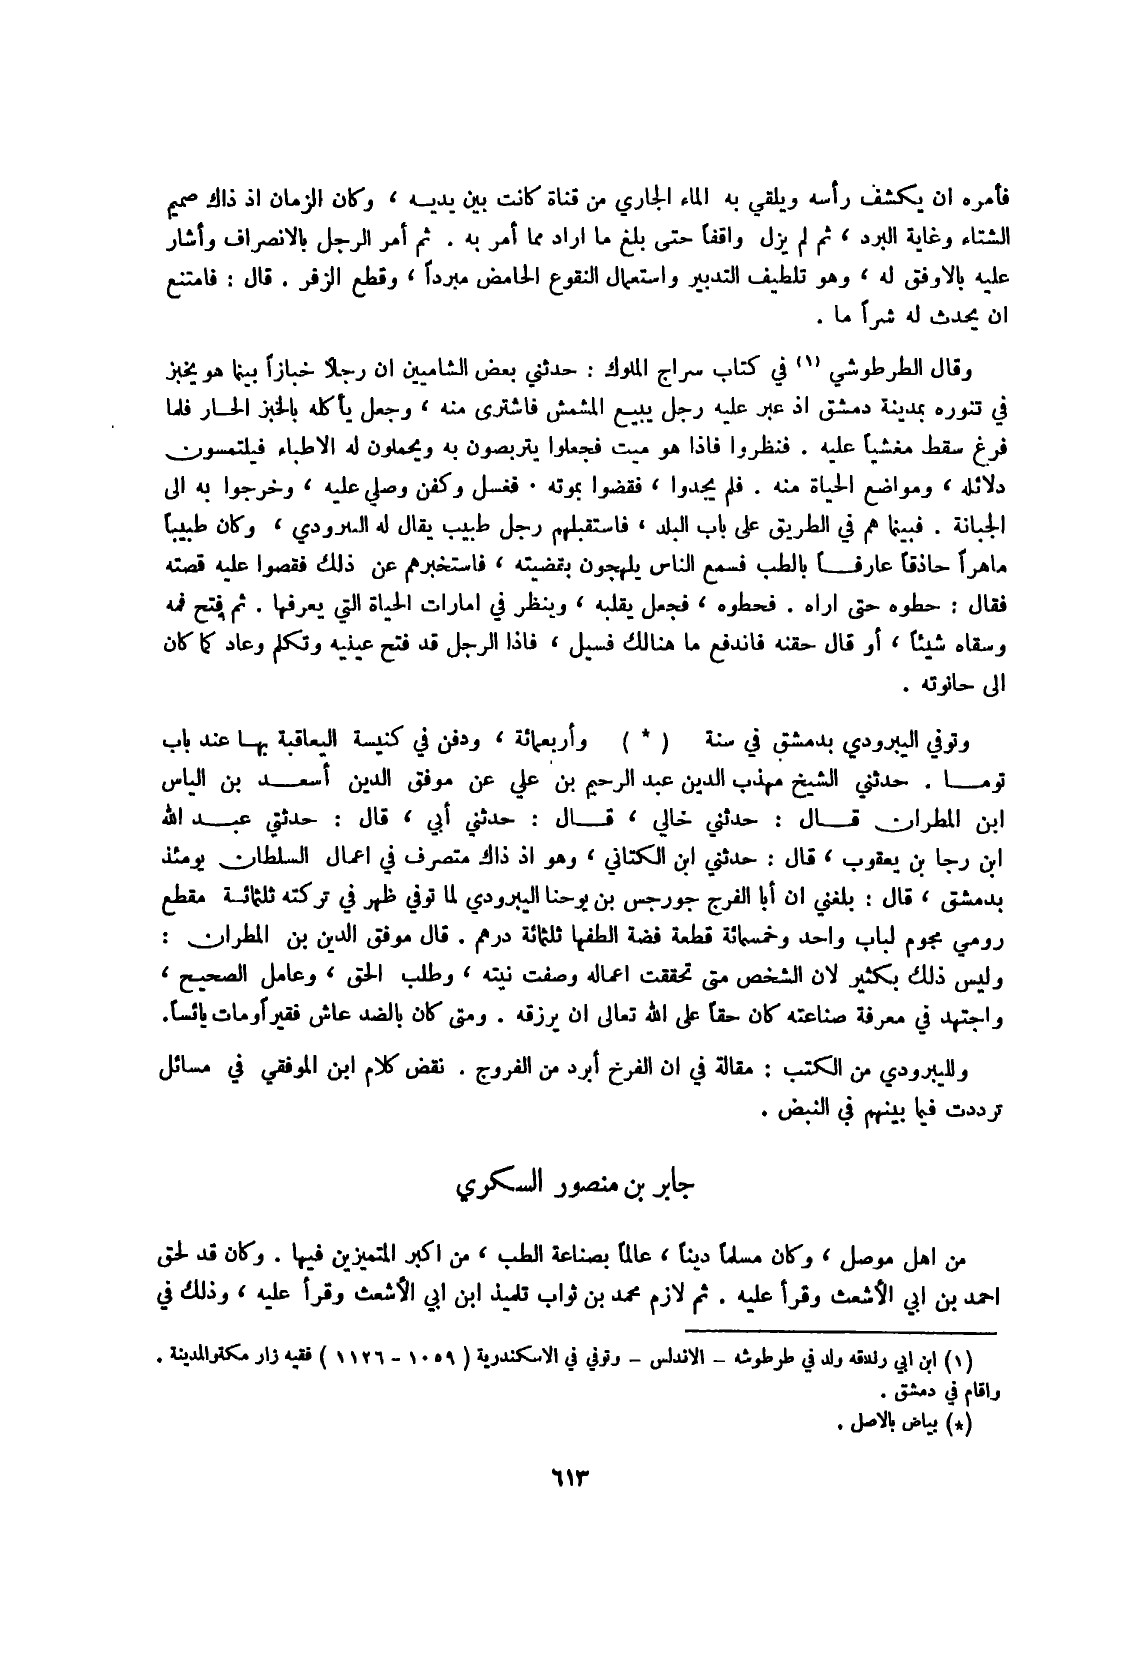 فأمره ان يكشف رأسه ويلقي به الماء الجاري من قناة كانت بين يديه ، وكان الزمان اذ ذاك صميم
الشتاء وغاية البرد ، ثم لم يزل واقفاً حتى بلغ ما اراد مما أمر به . ثم أمر الرجل بالانصراف وأشار
عليه بالاوفق له ، وهو تلطيف التدبير واستعمال النقوع الحامض مبرداً ، وقطع الزفر . قال : فامتنع
ان يحدث له شراً ما .
وقال الطرطوشي (١) في كتاب سراج الملوك : حدثني بعض الشاميين ان رجلاً خبازاً بينما هو يخبز
في تنوره بمدينة دمشق اذ عبر عليه رجل يبيع المشمش فاشترى منه ، وجعل يأكله بالخبز الحار فلما
فرغ سقط مغشياً عليه . فنظروا فاذا هو ميت فجعلوا يتربصون به ويحملون له الاطباء فيلتمسون
دلائله ، ومواضع الحياة منه . فلم يجدوا ، فقضوا بموته . فغسل وكفن وصلي عليه ، وخرجوا به الى
الجبانة . فبينما هم في الطريق على باب البلد ، فاستقبلهم رجل طبيب يقال له اليبرودي ، وكان طبيباً
ماهراً حاذقاً عارفاً بالطب فسمع الناس يلهجون بقضيته ، فاستخبرهم عن ذلك فقصوا عليه قصته
فقال : حطوه حتى اراه . فحطوه ، فجعل يقلبه ، وينظر في امارات الحياة التي يعرفها . ثم فتح فمه
وسقاه شيئاً ، أو قال حقنه فاندفع ما هنالك فسيل ، فاذا الرجل قد فتح عينيه وتكلم وعاد كما كان
الى حانوته .
وتوفي اليبرودي بدمشق في سنة ( * ) وأربعمائة ، ودفن في كنيسة اليعاقبة بها عند باب
توما . حدثني الشيخ مهذب الدين عبد الرحيم بن علي عن موفق الدين أسعد بن الياس
ابن المطران قال : حدثني خالي ، قال : حدثني أبي ، قال : حدثني عبد الله
ابن رجا بن يعقوب ، قال : حدثني ابن الكتاني ، وهو اذ ذاك متصرف في اعمال السلطان يومئذ
بدمشق ، قال : بلغني ان أبا الفرج جورجس بن يوحنا اليبرودي لما توفي ظهر في تركته ثلثمائة مقطع
رومي مجوم لباب واحد وخمسمائة قطعة فضة الطفها ثلثمائة درهم . قال موفق الدين بن المطران :
وليس ذلك بكثير لان الشخص متى تحققت اعماله وصفت نيته ، وطلب الحق ، وعامل الصحيح ،
واجتهد في معرفة صناعته كان حقاً على الله تعالى ان يرزقه . ومتى كان بالضد عاش فقيراً ومات يائساً.
ولليبرودي من الكتب : مقالة في ان الفرخ أبرد من الفروج . نقض كلام ابن الموفقي في مسائل
ترددت فيما بينهم في النبض .
جابر بن منصور السكري
من اهل موصل ، وكان مسلماً ديناً ، عالماً بصناعة الطب ، من اكبر المتميزين فيها . وكان قد لحق
احمد بن ابي الأشعث وقرأ عليه . ثم لازم محمد بن ثواب تلميذ ابن ابي الأشعث وقرأ عليه ، وذلك في
(١) ابن ابي رندقه ولد في طرطوشه – الاندلس – وتوفي في الاسكندرية ( ١٠٥٩ - ١١٢٦ ) فقيه زار مكة والمدينة .
واقام في دمشق .
(*) بياض بالاصل .
٦١٣